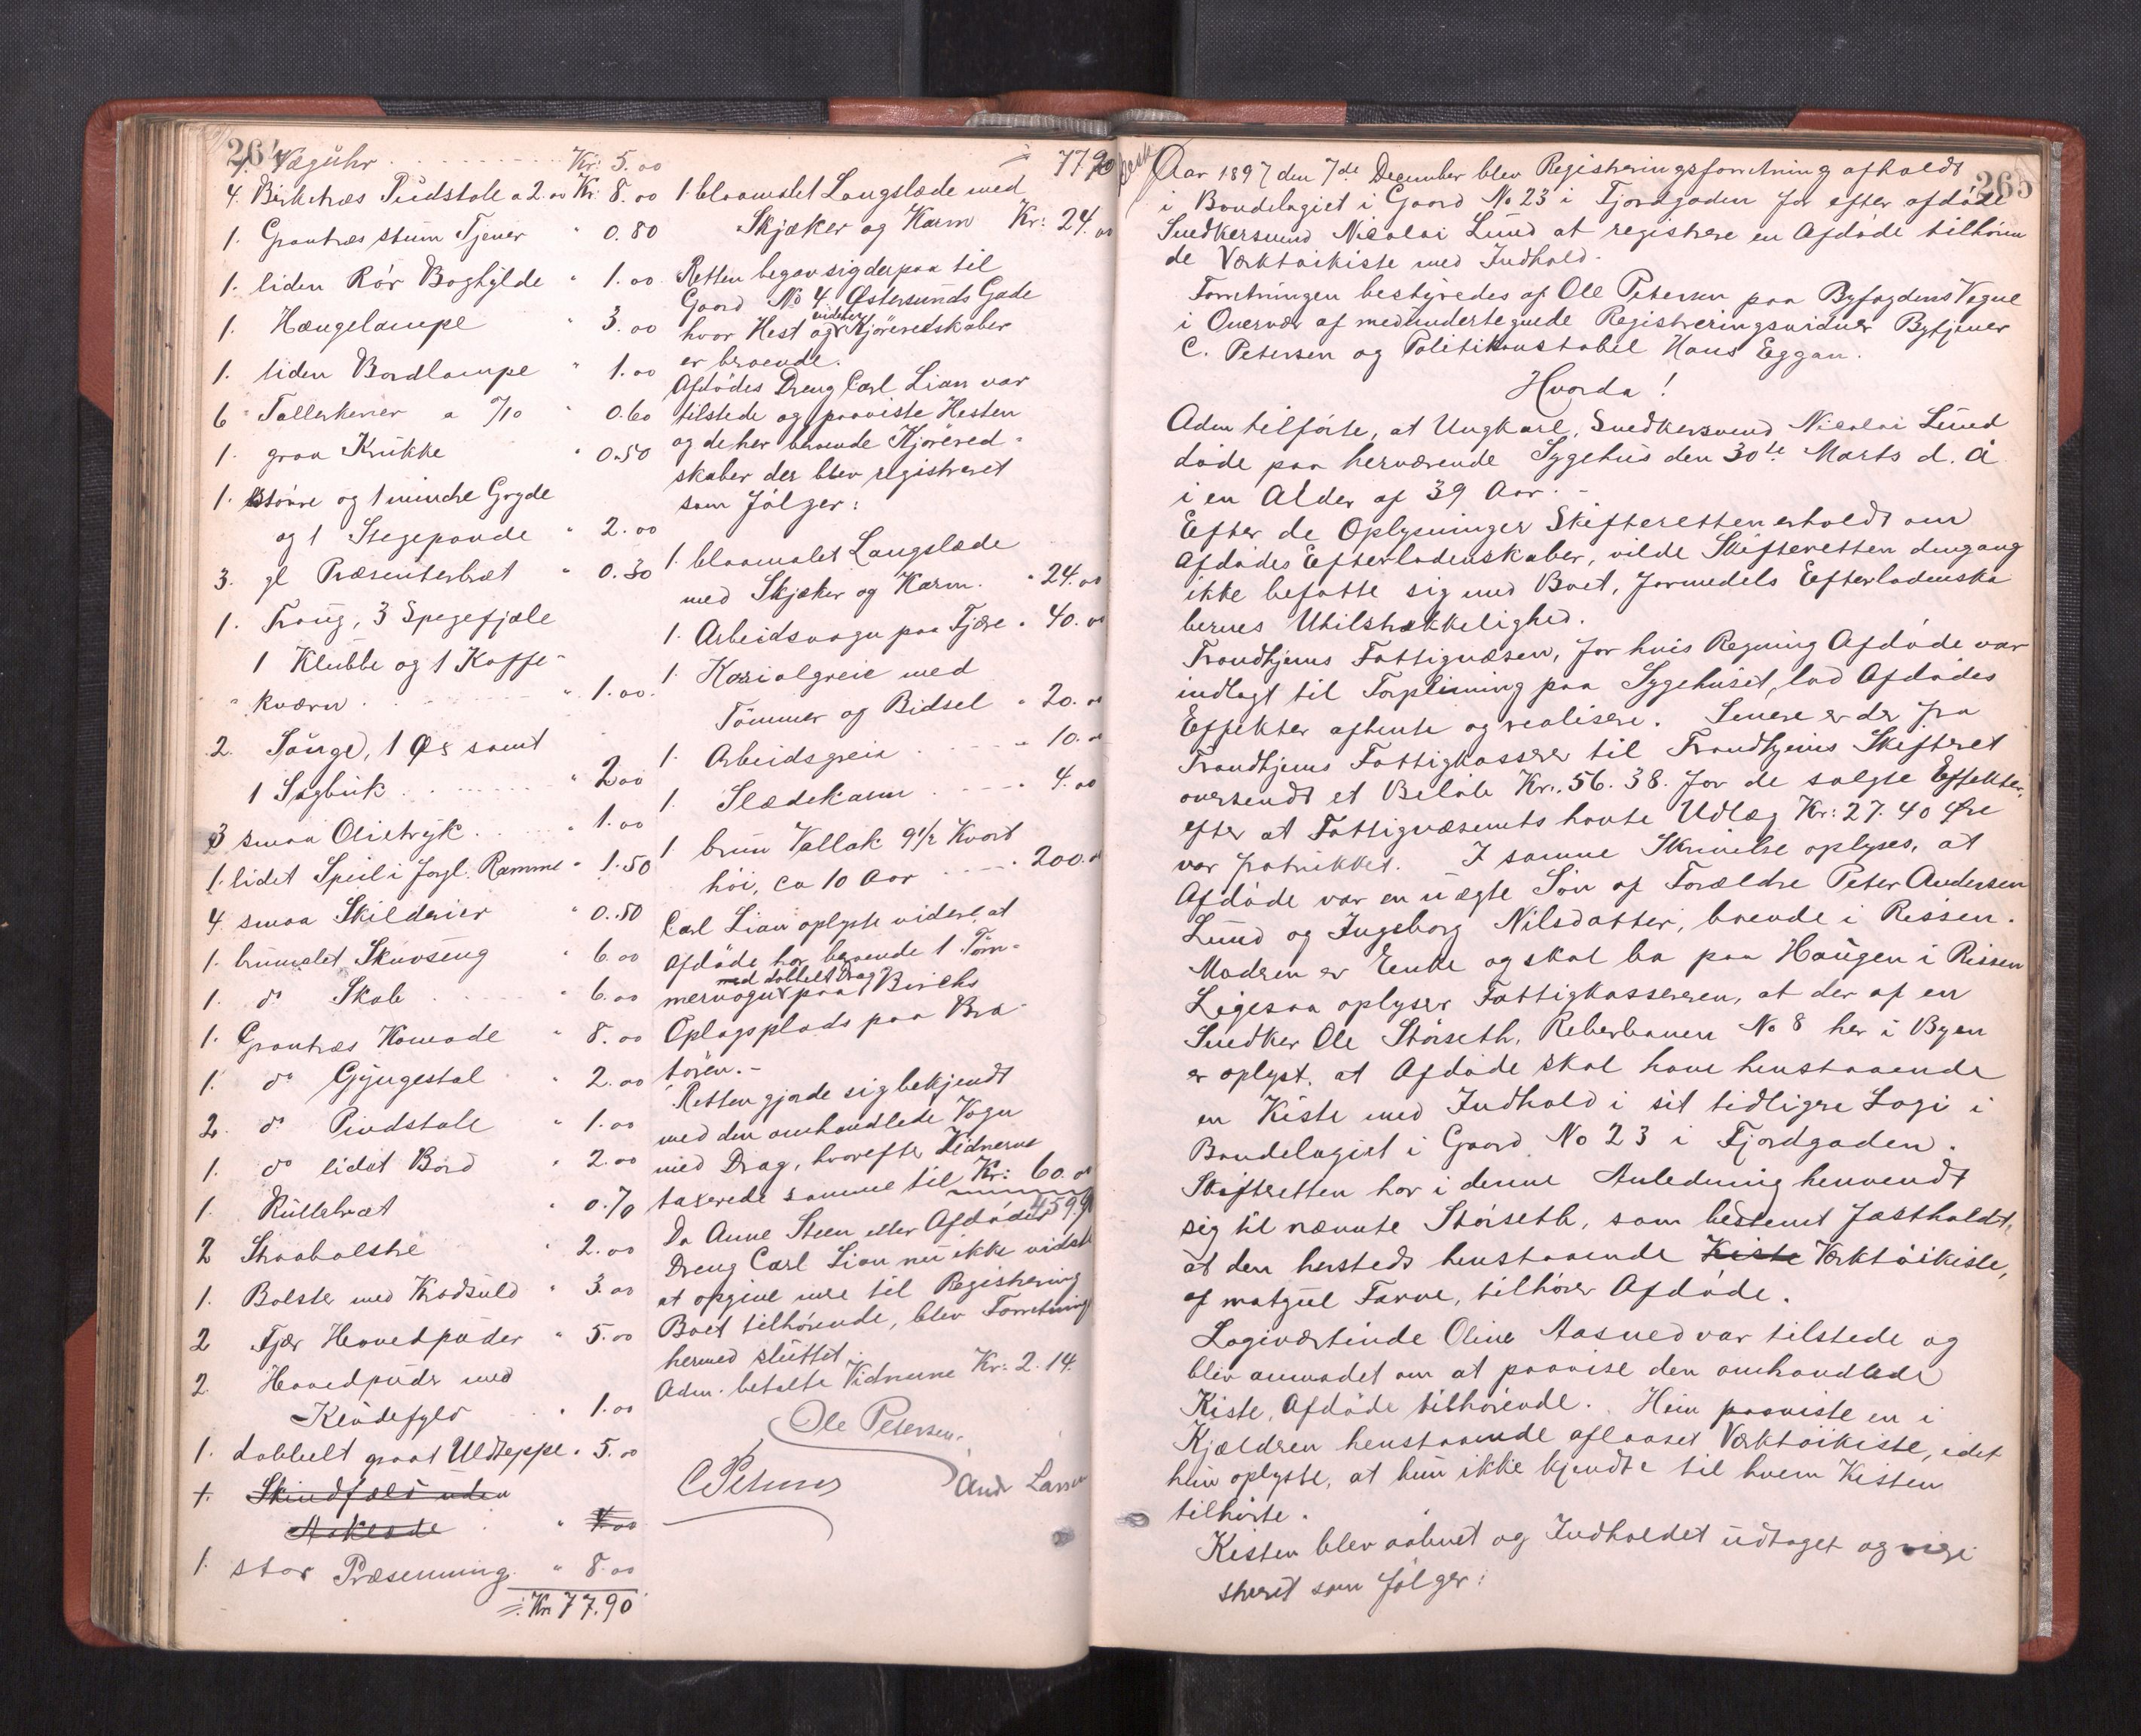 264
1. Væguhr Kr: 5.00
4. Birketræs Pindstole a 2.00 Kr. 8.00
1. Grantræs stum Tjener " 0.80
1. liden Rör Boghylde " 1.00
1. Hængelampe " 3.00
1. liden Bordlampe " 1.00
6 Tallerkener a 0/10 " 0.60
1. graa Krukke " 0.50
1. större og 1 mindre Gryde
og 1 Stegepande " 2.00
3. gl Præsenterbræt " 0.30
1. Traug, 3 Spegefjæle
1 Klubbe og 1 Kaffe-
kværn " 1.00
2. Sauge, 1 Öx samt
1 Sagbuk " 2.00
3 smaa Olietryk " 1.00
1. lidet Speil i forgl. Ramme " 1.50
4 smaa Skilderier " 0.80
1. brunmalet Skuvseng " 6.00
1. do Skab " 6.00
1. Grantræs Komode " 8.00
1. do Gyngestol " 2.00
2. do Pindstole " 1.00
1. do lidet Bord " 2.00
1. Rullebræt " 0.70
2 Straabolstre " 2.00
1. Bolster med Krøduld " 3.00
2 Fjær Hovedpuder " 5.00
2. Hovedpuder med
Kludefyld " 1.00
1. dobbelt graat Uldteppe " 5.00
1. Skindfæld uden
Aaklæde " 4.00
1. stor Præsenning " 8.00
=: Kr 77.90
= 77.90
1. blaamalet Langslæde med
Skjæker og Karm Kr: 24.00
Retten begav sig derpaa til
Gaard No 4. Østersunds Gade
hvor Hest og videre Kjöreredskaber
er beroende.
Afdödes Dreng Carl Lian var
tilstede og paaviste Hesten
og de her beroende Kjörered-
skaber der blev registreret
som fölger:
1. blaamalet Langslæde
med Skjæker og Karm. " 24.00
1. Arbeidsvogn paa Fjære " 40.00
1. Karialgreie med
Tömmer og Bidsel " 20.00
1. Arbeidsgreie " 10.00
1. Slædekarm " 4.00
1. brun Vallak 9 1/2 Kvart
höi, ca 10 Aar " 200.00
Carl Lian oplyste videre, at
Afdöde har beroende 1 Töm-
mervogn med dobbelt Drag paa Birchs
Oplagsplads paa Bra-
tören.-
Retten gjorde sig bekjendt
med den omhandlede Vogn
med Drag, hvorefter Vidnerne
taxerede samme til Kr: 60.00
459.90
Da Anne Steen eller Afdödes
Dreng Carl Lian nu ikke vidste
at opgive mere til Registrering
Boet tilhörende, blev Forretning
hermed sluttet.
Adm. betalte Vidnerne Kr: 2.14.
Ole Petersen.
C Petersen Andr Larsen
265
Aar 1897 den 7de December blev Registreringsforretning afholdt
i Bondelogiet i Gaard No 23 i Fjordgaden for efter afdöde
Snedkersvend Nicolai Lund at registrere en Afdöde tilhören
de Værktöikiste med Indhold.
Forretningen bestyredes af Ole Petersen paa Byfogdens Vegne
i Overvær af medundertegnede Registreringsvidner Bytjener
C. Petersen og Politikonstabel Hans Eggan.
Hvorda!
Adm tilförte, at Ungkarl, Snedkersvend Nicolai Lund
döde paa herværende Sygehus den 30te Marts d. A
i en Alder af 39 Aar.-
Efter de Oplysninger Skifteretten erholdt om
Afdödes Efterladenskaber, vilde Skifteretten dengang
ikke befatte sig med Boet, formedels Efterladenska
bernes Utilstrækkelighed.
Trondhjems Fattigvæsen, for hvis Regning Afdöde var
indlagt til Forpleining paa Sygehuset, lod Afdödes
Effekter afhente og realisere. Senere er der fra
Trondhjems Fattigkasserer til Trondhjems Skifteret
oversendt et Belöb Kr: 56.38. for de solgte Effekter,
efter at Fattigvæsenets havte Udlæg Kr: 27.40 Øre
var fratrukket. I samme Skrivelse oplyses, at
Afdöde var en uægte Sön af Forældre Peter Andersen
Lund og Ingeborg Nilsdatter, boende i Rissen.
Modren er Enke og skal bo paa Haugen i Rissen
Ligesaa oplyser Fattigkassereren, at der af en
Snedker Ole Störseth, Reberbanen No 8 her i Byen
er oplyst, at Afdöde skal have henstaaende
en Kiste med Indhold i sit tidligere Logi i
Bondelogiet i Gaard No 23 i Fjordgaden.
Skifteretten har i denne Anledning henvendt
sig til nævnte Störseth, som bestemt fastholdt,
at den hersteds henstaaende Kiste Værktöikiste,
af matgul Farve, tilhörer Afdöde.
Logiværtinde Oline Aasved var tilstede og
blev anmodet om at paavise den omhandlede
Kiste, Afdöde tilhörende. Hun paaviste en i
Kjældren henstaaende aflaaset Værktöikiste, idet
hun oplyste, at hun ikke kjendte til hvem Kisten
tilhörte.
Kisten blev aabnet og Indholdet udtaget og regi
streret som fölger: